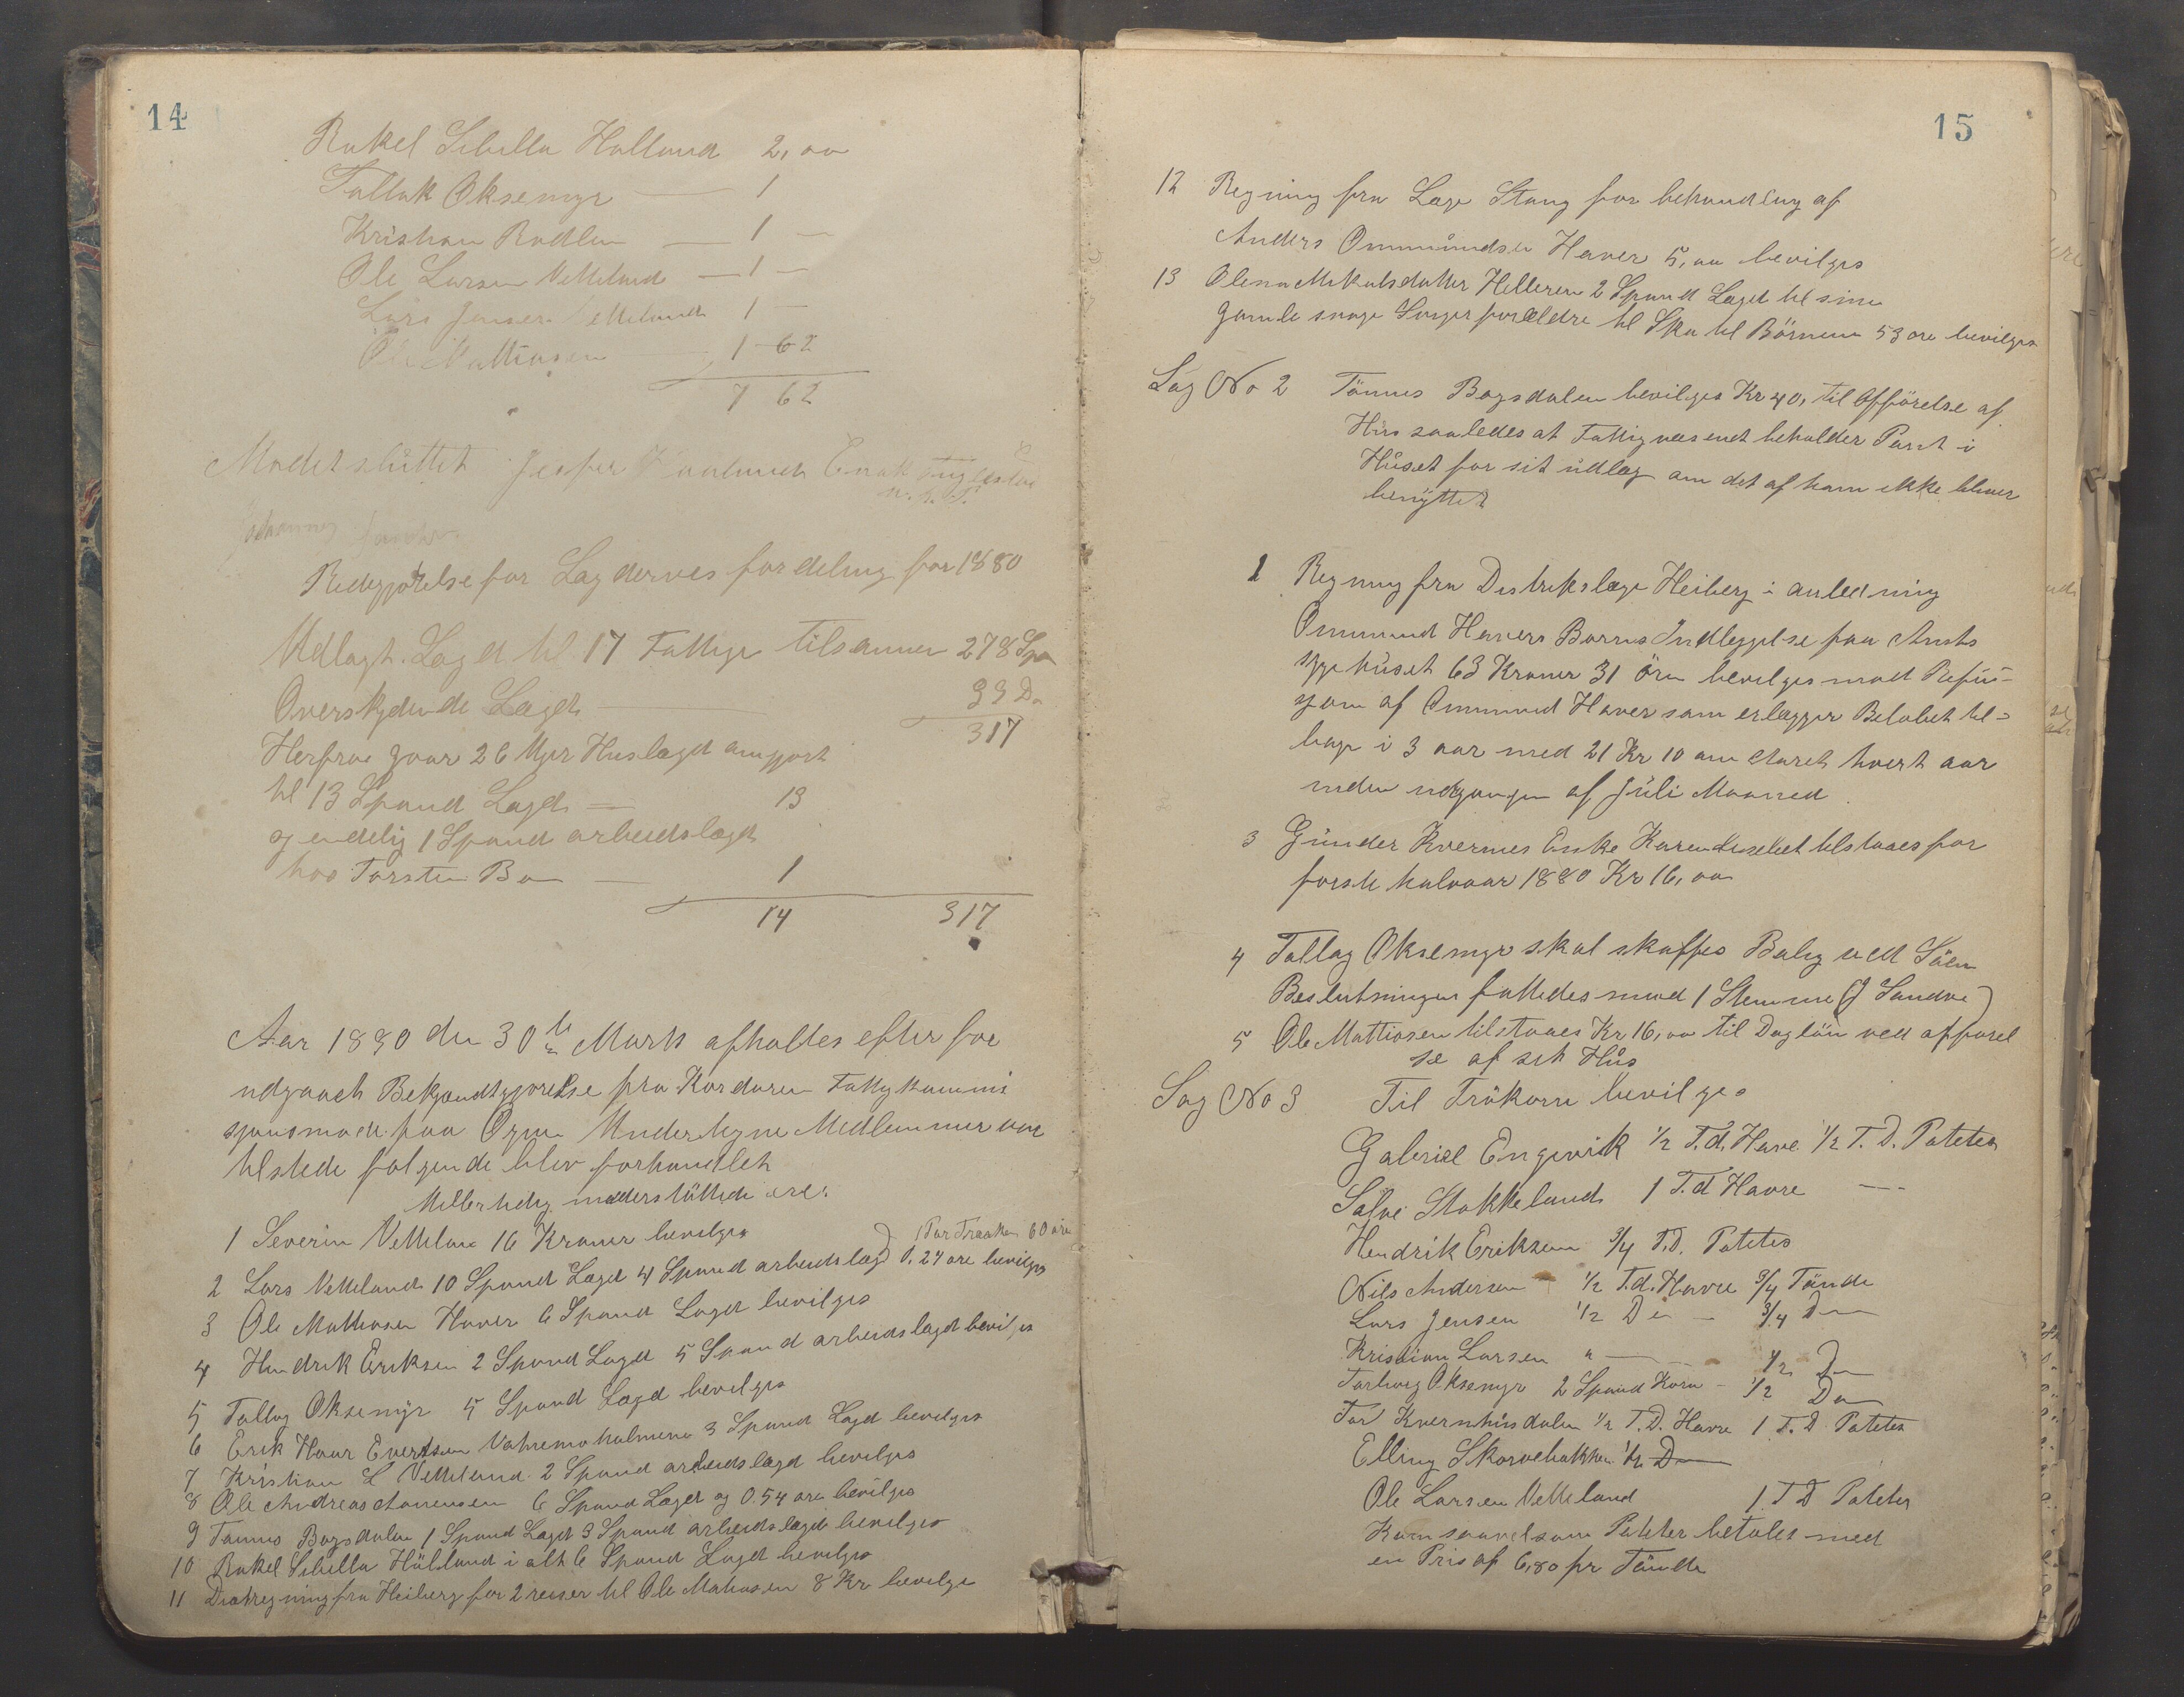 14
Rakel Sibilla Holland 2,00
Tallak Oksemyr — 1
Kristian Rodlin — 1 —
Ole Larsen Vetteland — 1 —
Lars Jensen Vetteland 1 —
Ole Mattiasen — 1 - 62
7 62
Mødet sluttet Jesper Enok Fuglestad
Johannes Sandve
Redegjørelse for Lagdernes fordeling for 1880
Udlagt Lægd til 17 Fattige tilsammen 278 Spa
Overskydende Lægd — 39 Do
317
Herfra gaar 26 Uger Huslægd omgjort
til 13 Spand Lægd — 13
og endelig 1 Spand arbeidslægd
hos Torsten Bø — 1
14 317
Aar 1880 den 30te Marts afholtes efter for
udgaaet Bekjendtgjørelse fra Fattigkommis
sjonsmøde paa Ogne Undertegne Medlemmer var
tilstede følgende blev forhandlet
Mellertidig understøttede
1 Severin Vetteland 16 Kroner bevilges
(Par Træsko 60 øre
2 Lars Vetteland 10 Spand Lægd 4 Spand arbeidslægd 0,24 øre bevilges
3 Ole Mattiasen Haver 6 Spand Lægd bevilges
4 Hendrik Eriksen 2 Spand Lægd 5 Spand arbeidslægd bevilges
5 Tallag Oksemyr 5 Spand Lægd bevilges
6 Erik Haar Evertsen 3 Spand Lægd bevilges
7 Kristian L Vetteland 2 Spand arbeidslægd bevilges
8 Ole Andreas Aanensen 6 Spand Lægd og 0.54 øre bevilges
9 Tønnes Bøgsdalen 1 Spand Lægd 3 Spand arbeidslægd bevilges
10 Rakel Sibilla Hølland i alt 6 Spand Lægd bevilges
11 Diætregning fra Heiberg for 2 reiser til Ole Matiasen 8 Kr bevilges
15
12 Regning fra Læge Stang for behandling af
Anders Ommundsen Haver 5,00 bevilges
13 Olena Mikalsdatter Helleren 2 Spand Lægd til sine
gamle svage Svigerforældre til Sko til Børnene 53 øre bevilges
Sag No 2 Tønnes Bøgsdalen bevilges Kr 40, til Opførelse af
Hus saaledes at Fattigvæsenet beholder Pant i
Huset for sit udlæg om det af ham ikke bliver
benyttet
1 Regning fra Distrikslæge Heiberg i anledning
Ommund Havers Barns Indleggelse paa Amts
sygehuset 63 Kroner 31 Øre bevilges mod Refu-
sjon af Ommund Haver som erlægger Beløbet til-
bage i 3 aar med 21 Kr 10 om Aaret hvert aar
inden udgangen af Juli Maaned.
3 Gunder Kvernes Enke Karen Liesebet tilstaaes for
første halvaar 1880 Kr 16,00
4 Tallag Oksemyr skal skaffes Bolig ved Søen
Beslutningen fattedes mod 1 Stemme (J Sandve)
5 Ole Mattiasen tilstaaes Kr 16,00 til Dagløn ved opførel
se af sit Hus
Sag No 3 Til Frøkorn bevilges
Gabriel Engevik 1/2 T.d. Havre 1/2 T. D. Poteter
Salve Stokkeland 1 T.d Havre —
Hendrik Eriksen 3/4 T.D. Potetes
Nils Andersen — 1/2 T.d. Havre 3/4 Tønde
Lars Jensen 1/2 Do — 3/4 Do
Kristian Larsen " — 1/2 Do
Torborg Oksemyr 2 Spand Korn — 1/2 Do
Tor Kvernhusdalen 1/2 T.D. Havre 1 T. D Poteter
Elling Skorvehakken 1/2 Do
Ole Larsen Vetteland 1 T D Poteter
Korn saavelsom Poteter betales med
en Pris af 6,80 pr Tønde